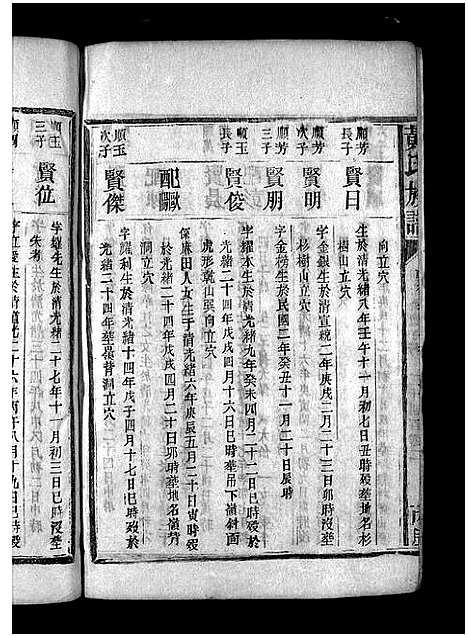 黃氏族譜
向立穴
順芳
長子
賢日
生於清光緒八年壬午十一月初七日丑時歿葬地名杉
樹山立穴
順芳
次子
賢明
字金銀生於清宣統二年庚戌二月二十三日卯時歿葬
杉樹山立穴
順芳
三子
賢朋
字金榜生於民國二年癸丑十二月二十日辰時
順玉
長子
賢俊
字耀本生於清光緒九年癸未四月二十二日巳時歿於
光緒二十四年戊戌四月十六日巳時葬吊下嶺斜面
虎形乾山巽向立穴
配歐
保麻田人女生于清光緒十年五月二十日寅時歿
於光緒二十四年戊戌四月二十日卯時葬地名嶺背
洞立穴
順玉
次子
賢傑
字耀利生於清光緒十四年戊子四月十七日巳時歿於
光緒二十四年葬嶺背洞立穴
順玉
三子
賢位
字耀先生於清光緒二十七年十一月初三日巳時沒葬
失考
字立愛生於清道光二十六年丙午八月十九日巳時歿